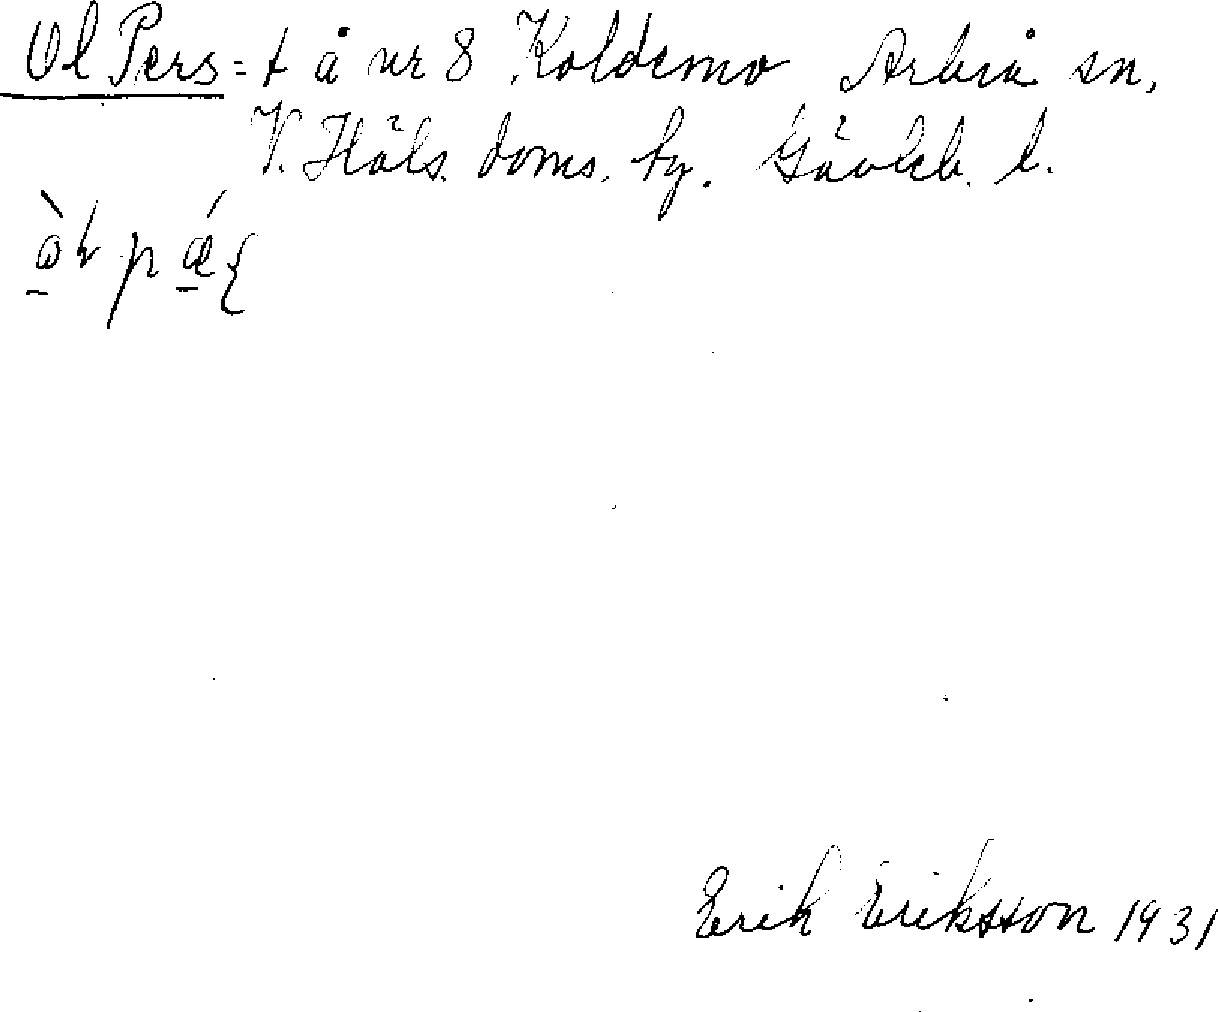 Ol Pers = t å nr 8 Koldemo Arbrå sn,
V. Häls. doms. hg. Gävleb. l.
Erik Eriksson 1931